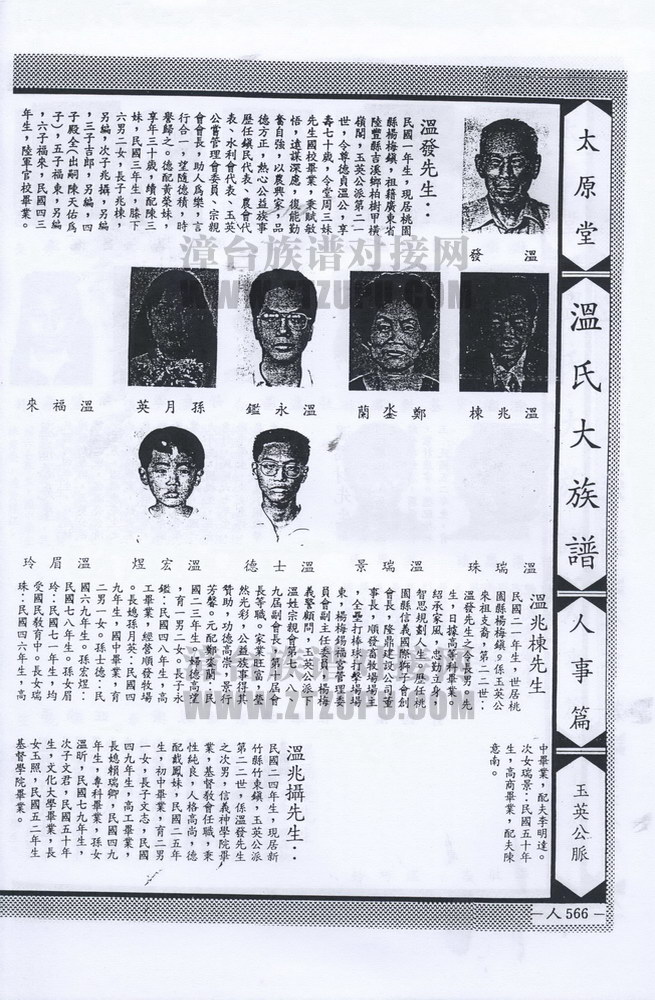 太原堂
溫氏大族譜
人事篇
玉英公脈
人566
溫發
溫發先生：
民國一年生，現居桃園
縣楊梅鎮，祖籍廣東省
陸豐縣吉溪鄉柏樹甲橫
嶺閣，玉英公派第二一
世，令尊德貞溫公，享
壽七十歲，令堂周三妹
先生國校畢業，秉賦敏
悟，遠謀深慮，復能勤
奮自強，以農興家，品
德方正，熱心公益族事
歷任鎮民代表、農會代
表、水利會代表、玉英
公嘗管理會委員、宗親
會會長，助人為樂，言
行合一，望隨德積，時
譽歸之。德配黃榮妹，
享年三十歲，續配陳三
妹，民國三年生，膝下
六男二女，長子兆棟，
另編，次子兆攝，另編
，三子吉郎，另編，四
子殿全（出嗣陳天佑為
子），五子福東，另編
，六子福來，民國四三
年生，陸軍官校畢業。
溫兆棟
鄭埊蘭
溫永鑑
孫月英
溫福來
溫瑞珠
溫瑞景
溫士德
溫宏煜
溫眉玲
溫兆棟先生
民國二一年生，世居桃
園縣楊梅鎮。係玉英公
來祖支裔，第二二世：
溫發先生之令長男。先
生，日據高等科畢業。
紹承家風，忠勤行身，
智思規劃人，歷任桃
園縣信義國際獅子會創
會長，隆鼎建設公司董
事長，順發畜牧場場主
，全壘打棒球打擊場場
東，楊梅錫福宮管理委
員會副主任委員、楊梅
義警顧問，玉英公派下
溫姓宗親會第七、八、
九屆副會長，第十屆會
長等職。家業旺富，瑩
然光彩，公益族事得其
贊助，功德高崇，景行
芳馨。元配鄭埊蘭，民
國二三年生，賢德高望
，育一男二女。長子永
鑑：民國四八年生，高
工畢業，經營順發牧場
。長媳孫月英：民國四
九年生，國中畢業，育
二男一女。孫士德：民
國六九年生。孫宏煜：
民國七八年生。孫女眉
玲：民國七一年生，均
受國民教育中。長女瑞
珠：民國四六年生，高
中畢業，配夫李明達。
次女瑞景：民國五十年
生，高商畢業，配夫陳
意南。
溫兆攝先生：
民國二四年生，現居新
竹縣竹東鎮，玉英公派
第二二世，係溫發先生
之次男，信義神學院畢
業，基督教會任職，秉
性純良，人格高尚，德
配戴鳳妹，民國二五年
生，初中畢業，育二男
一女，長子文志，民國
四九年生，高工畢業，
長媳賴瑞卿，民國四九
年生，專科畢業，孫女
溫昕，民國七九年生，
次子文君，民國五十年
生，文化大學畢業，長
女玉照，民國五二年生
基督學院畢業。
漳台族谱对接网
WWW.ZTZUPU.COM
漳台族谱对接网
WWW.ZTZUPU.COM